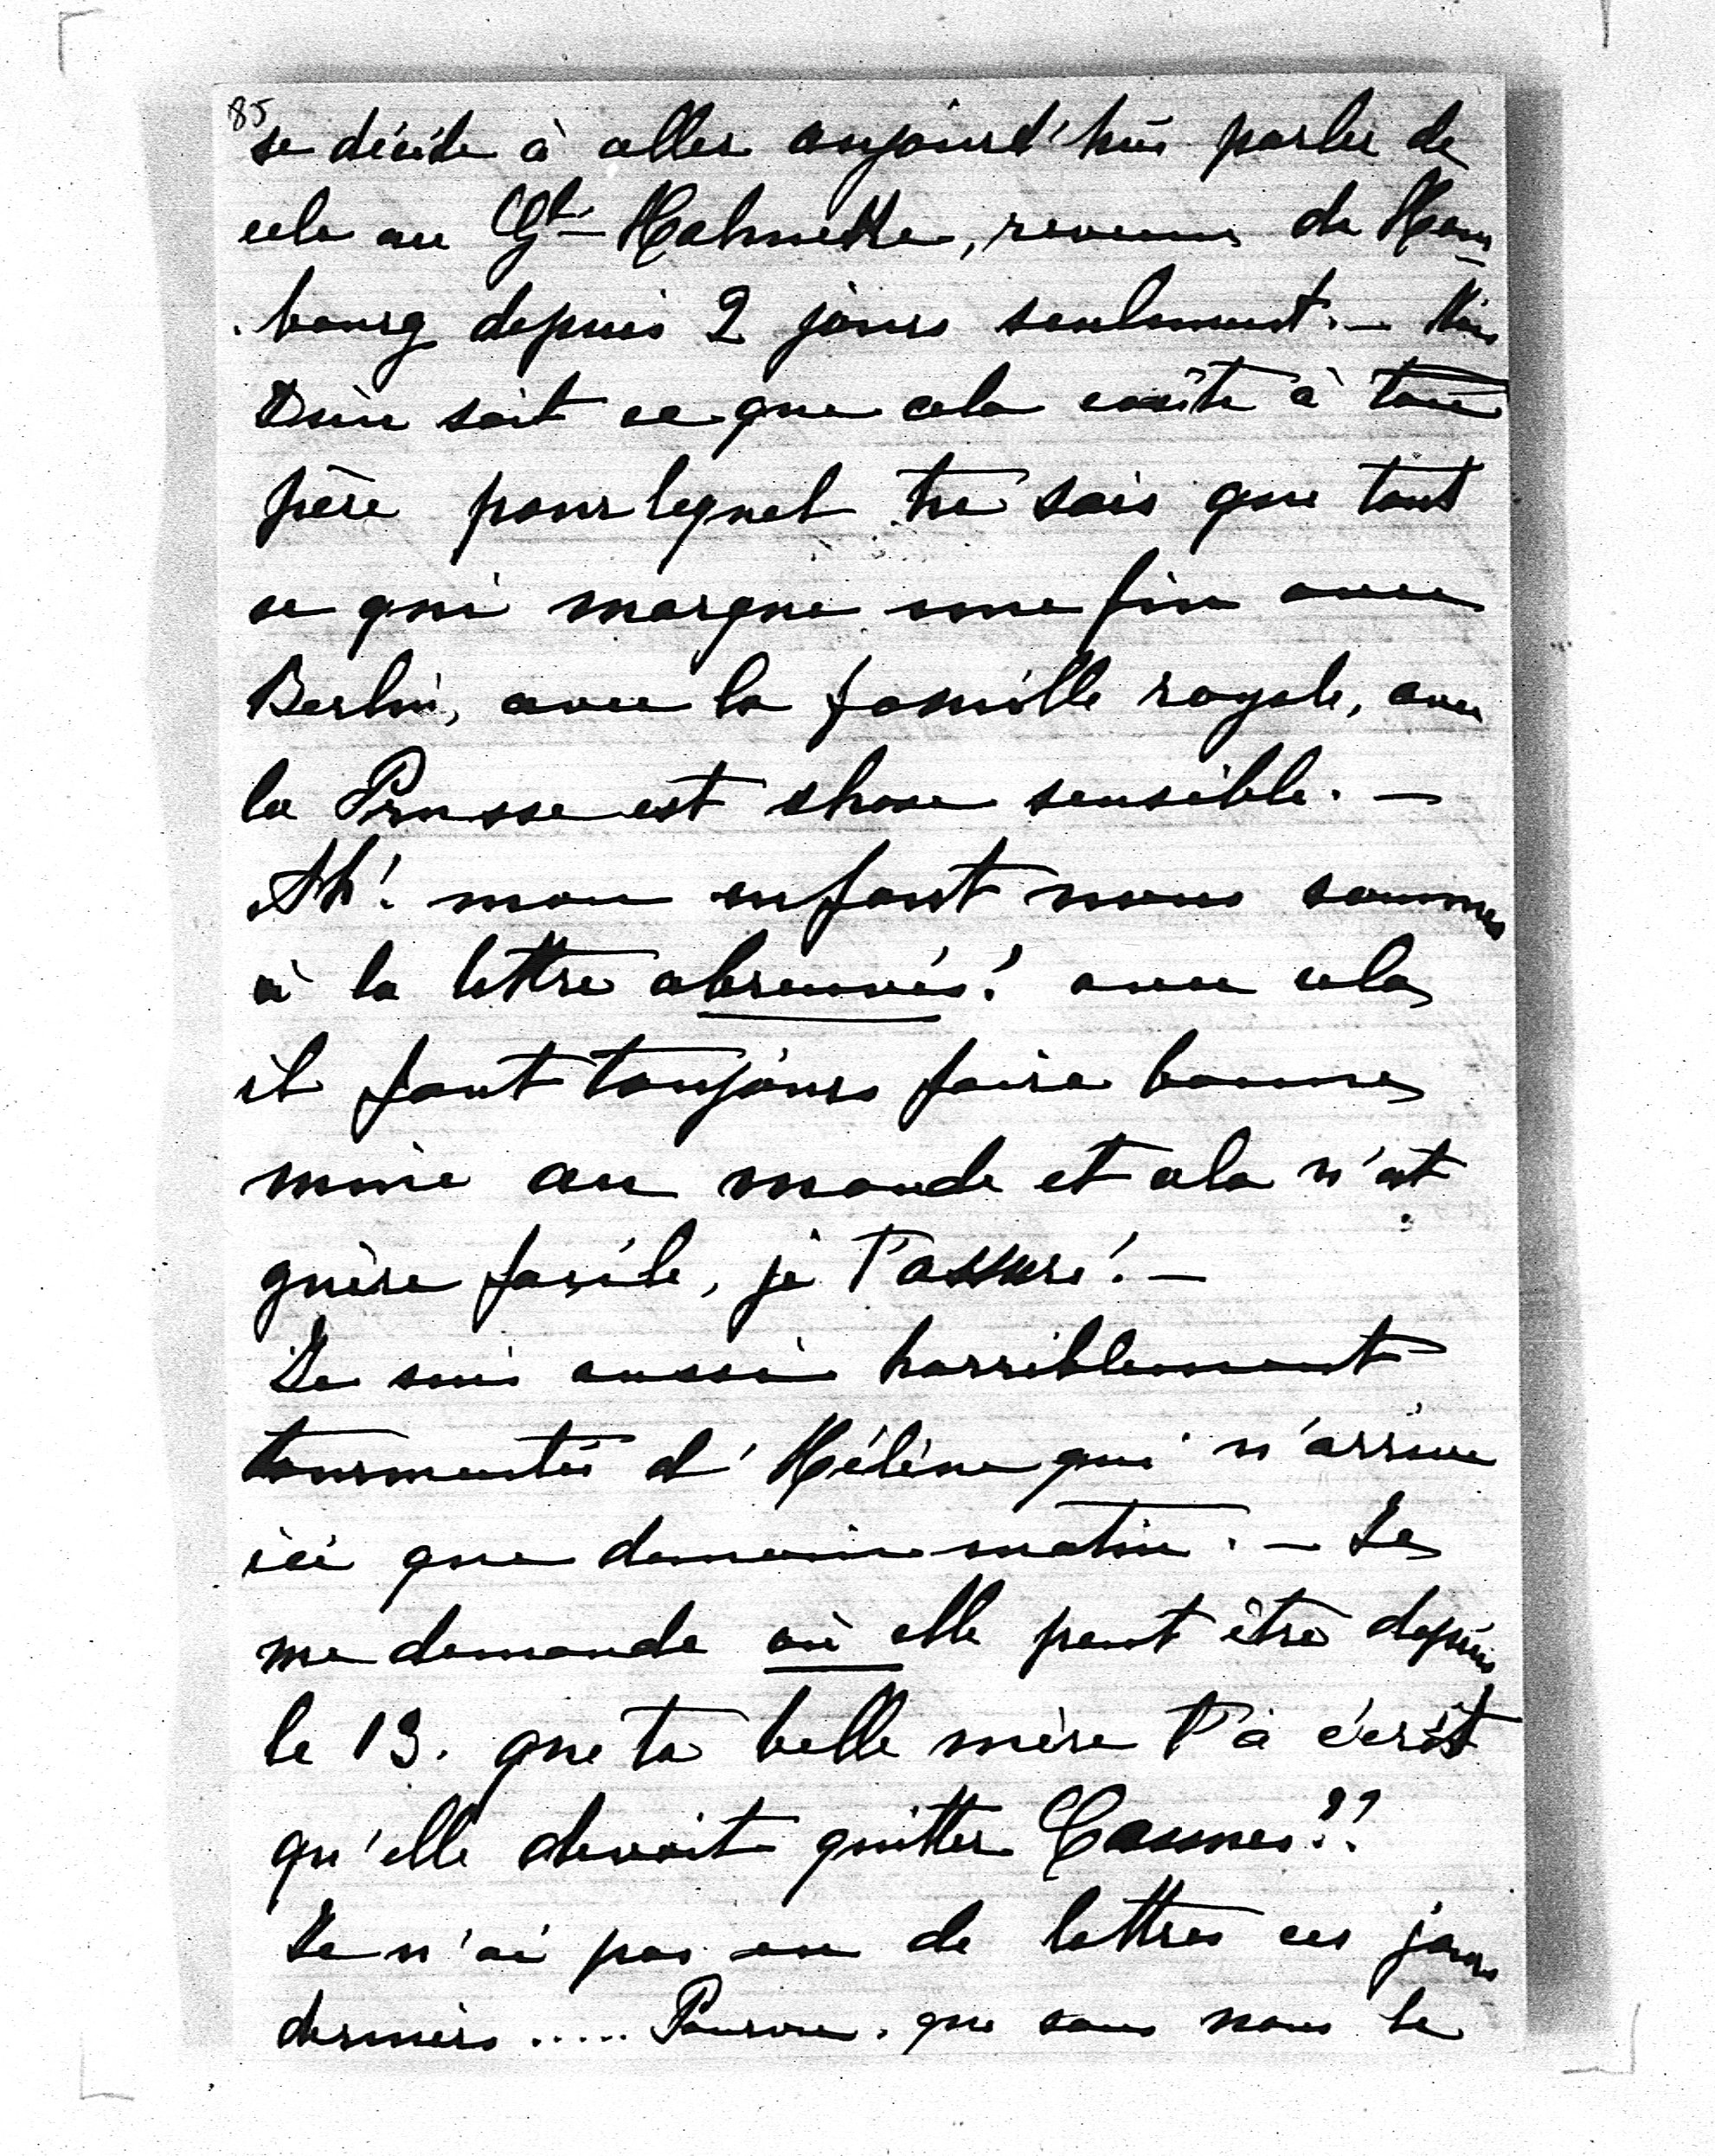 85
se décide à aller aujourd'hui parler de
cela au Gt Hahnke, revenu de Ham
bourg depuis 2 jours seulement. –
Dieu sait ce que cela coûte à ton
père pour lequel tu sais que tout
ce qui marque une fin avec
Berlin, avec la famille royale, avec
la Prusse est chose sensible. –
Ah! mon enfant nous sommes
à la lettre abreuvés! avec cela
il faut toujours faire bonne
mine au monde et cela n'est
guère facile, je t'assure! –
Je suis aussi horriblement
tourmentée d'Hélène qui n'arrive
ici que demain matin. – Je
me demande où elle peut être depuis
le 13. que ta belle mère t'a écrit
qu'elle devait quitter Cannes??
Je n'ai pas eu de lettres ces jours
derniers ..... Pourvu que sans nous le